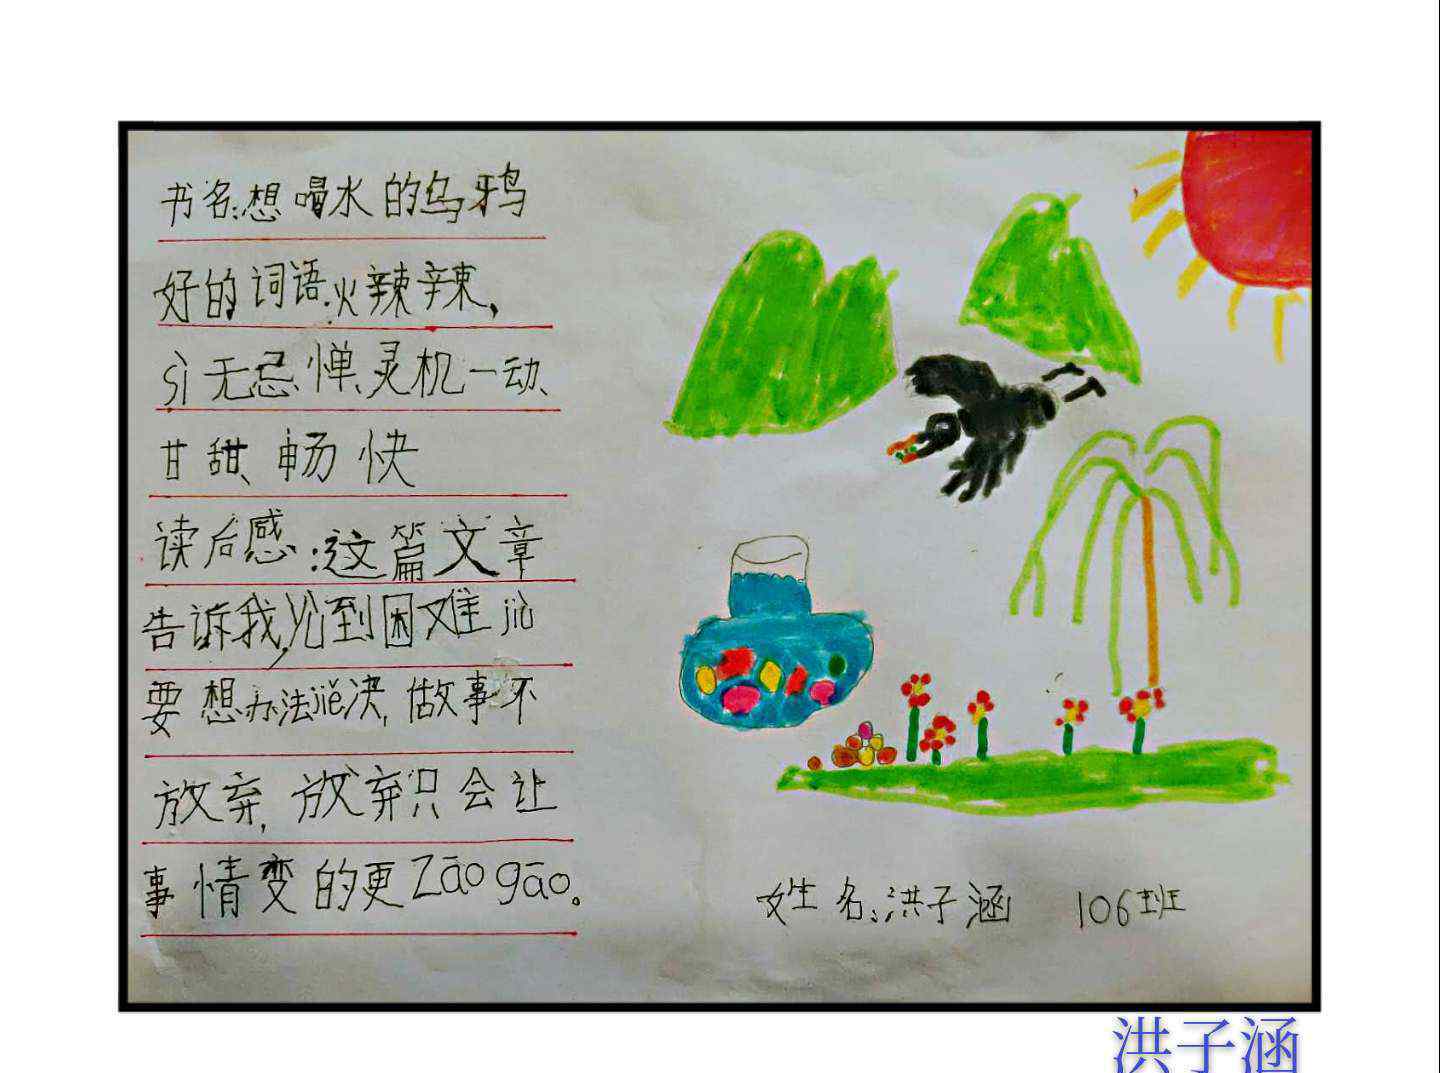 书名:想喝水的乌鸦
好的词语:火辣辣,
sì无忌惮、灵机一动、
甘甜、畅快
读后感:这篇文章
告诉我,遇到困难jiù
要想办法jiě决,做事不
放弃,放弃只会让
事情变的更zāo gāo。
姓名:洪子涵 106班
洪子涵